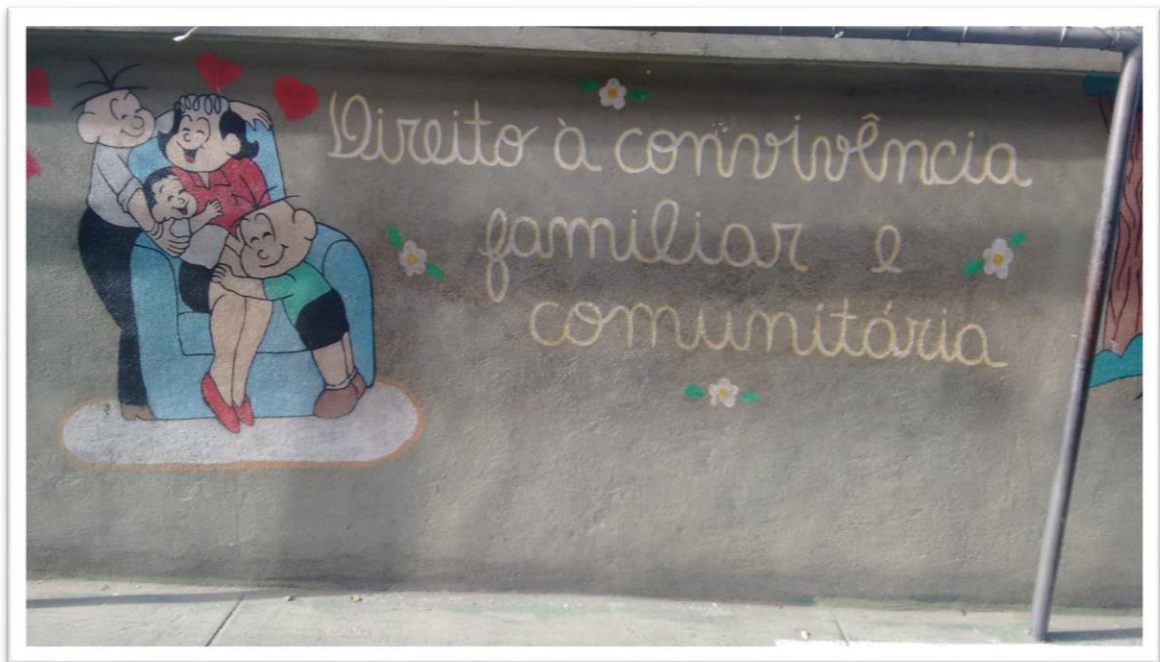 Direito à convivência
familiar e
comunitária